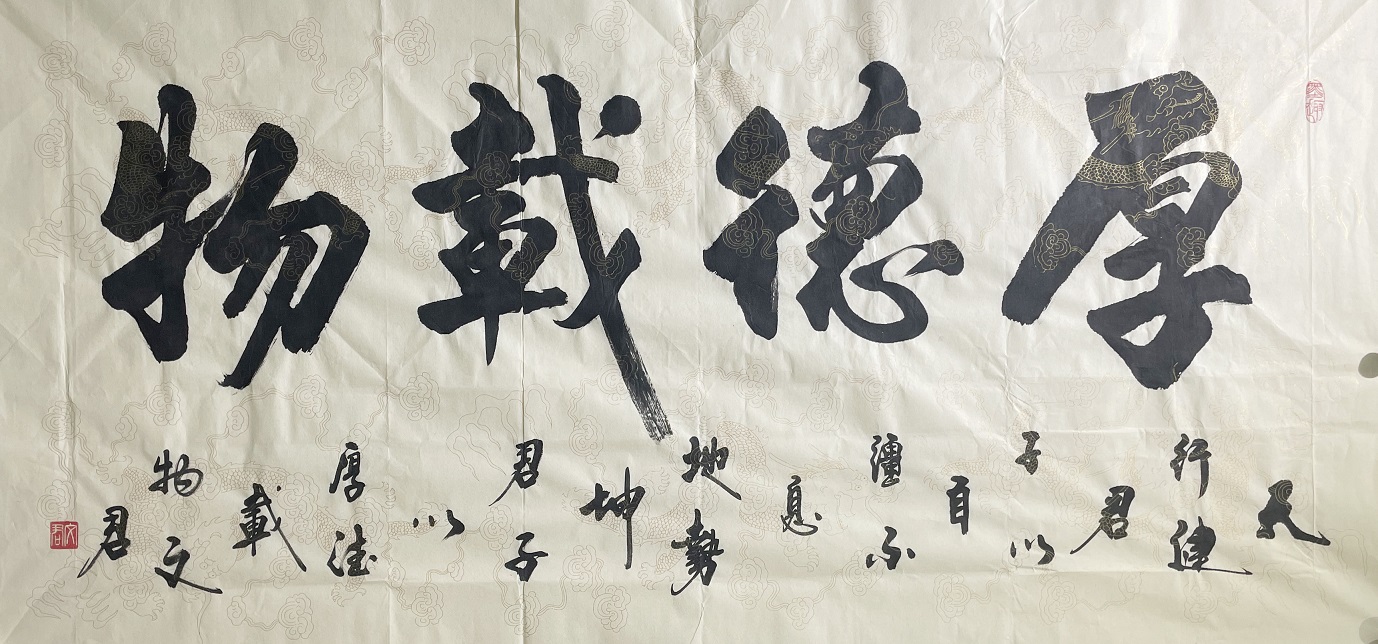 厚德載物
天行健君子以自彊不息地勢坤君子以厚德載物文君
文君